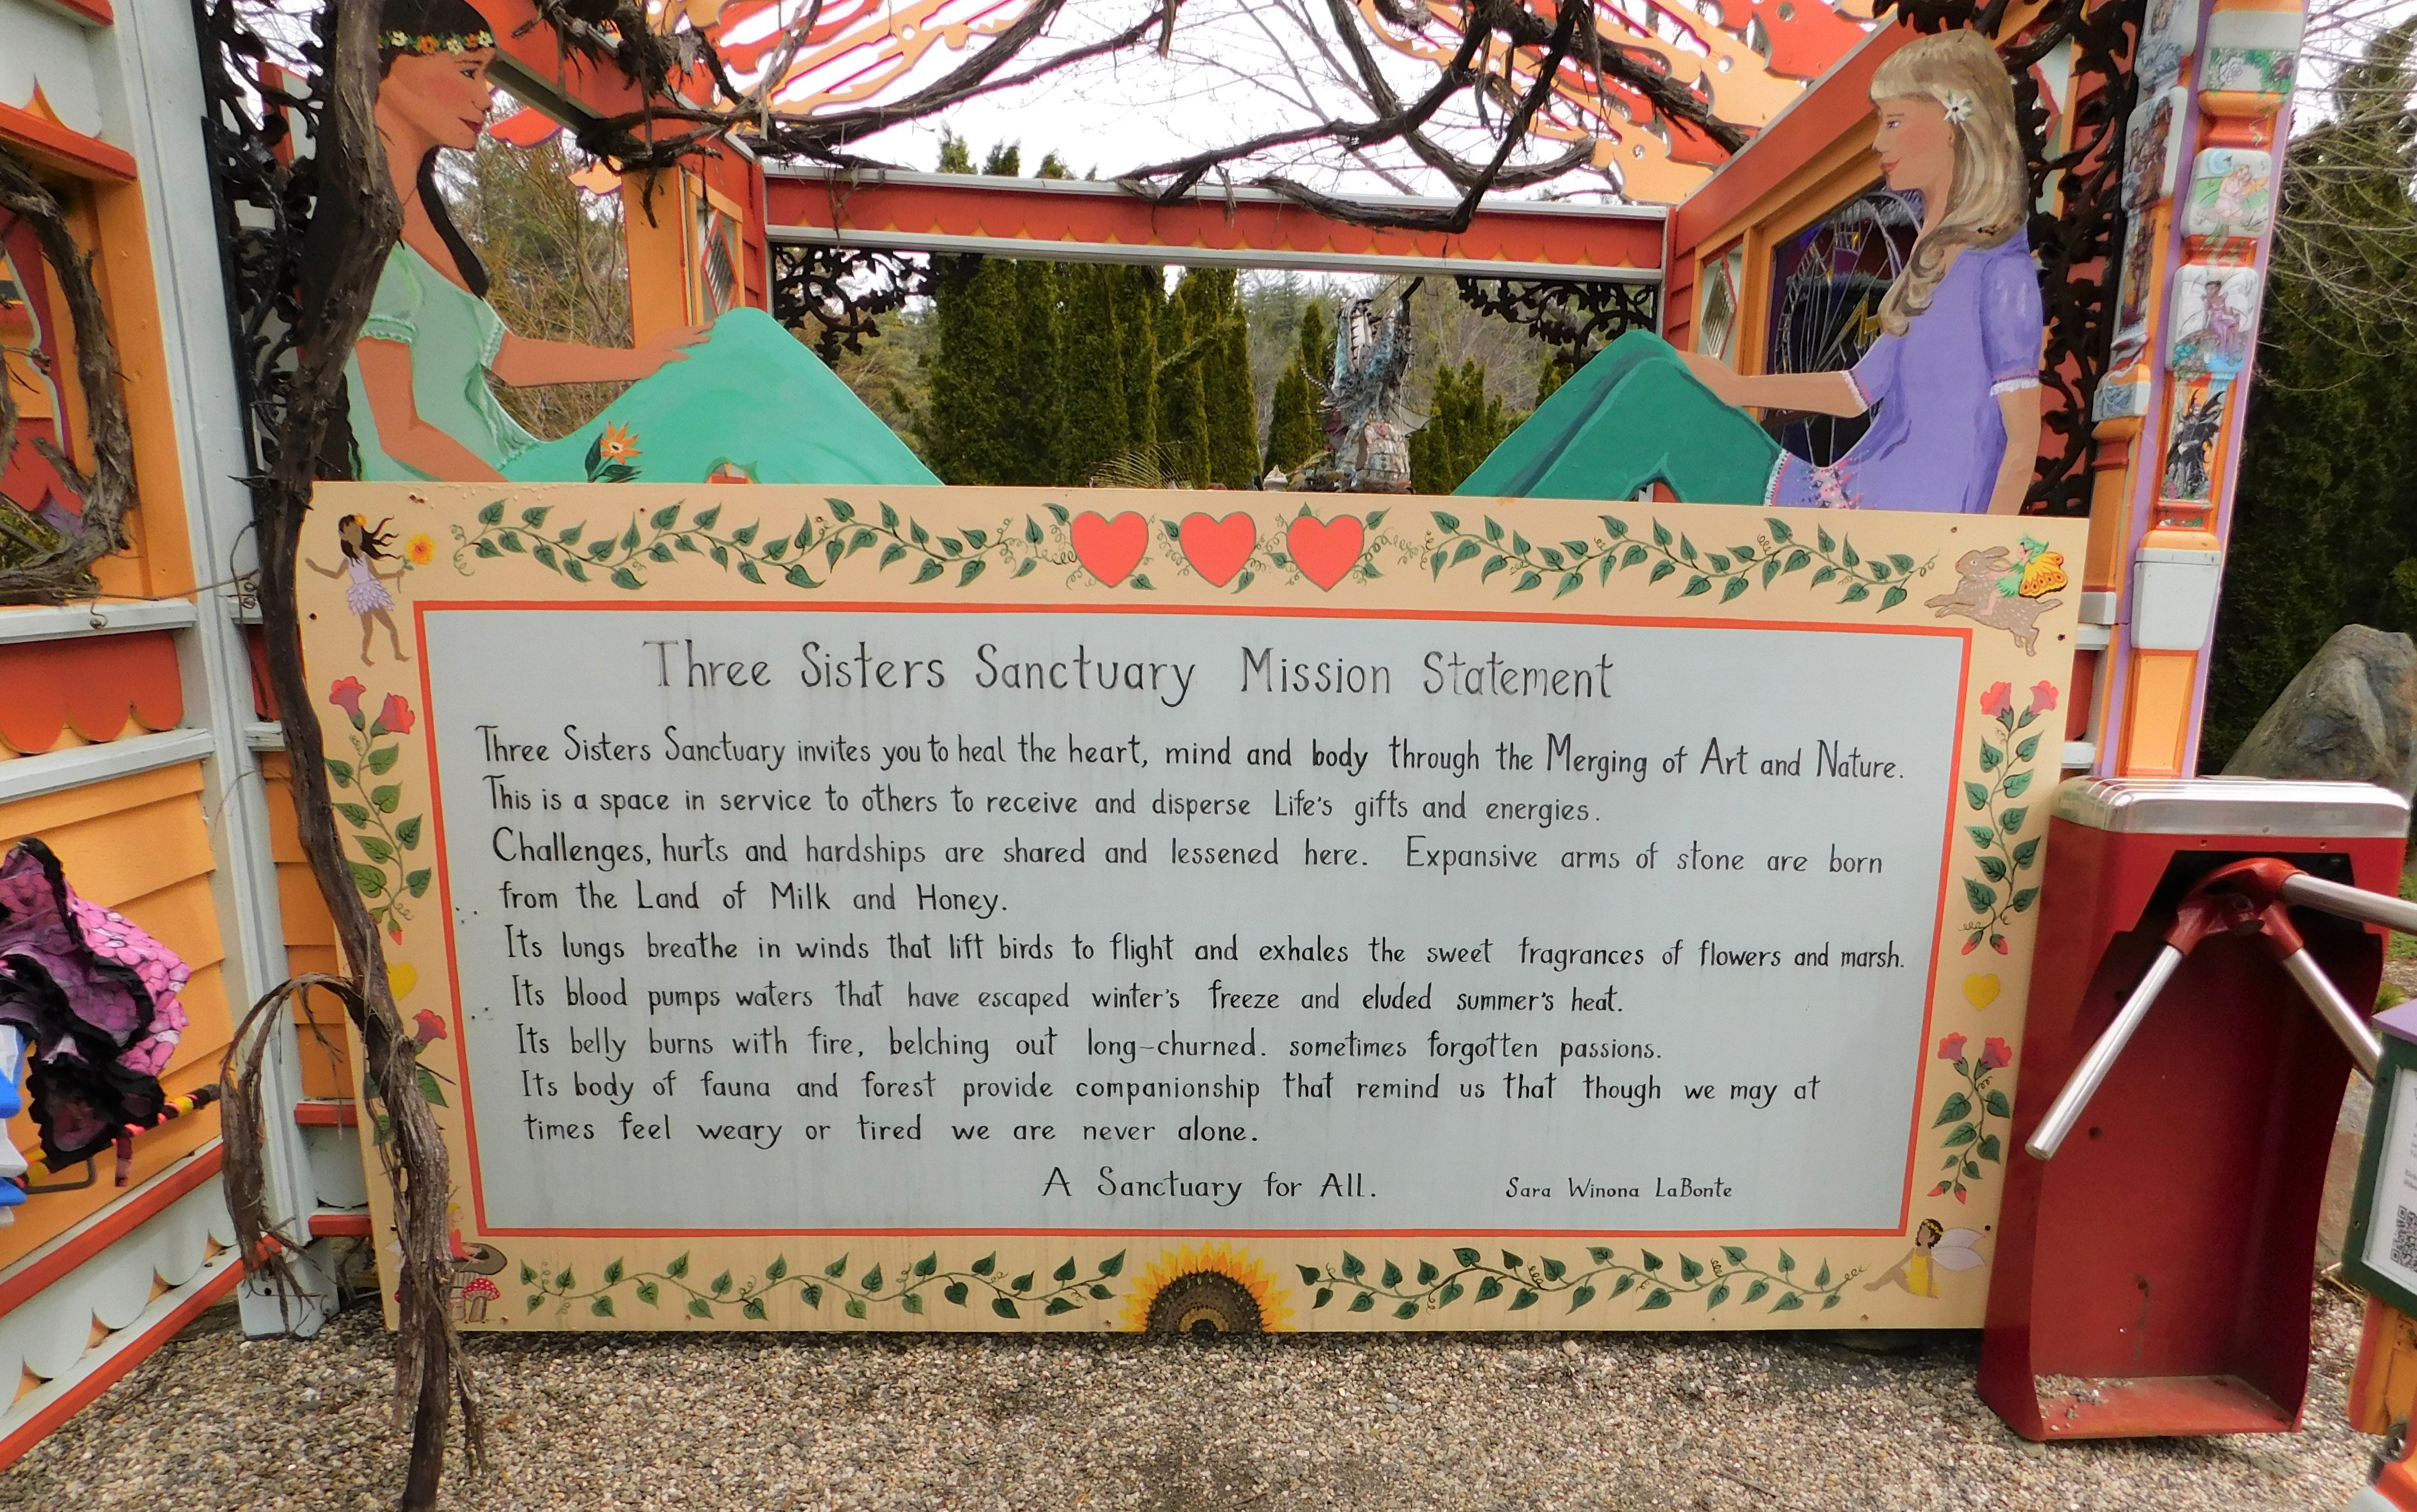 Three Sisters Sanctuary Mission Statement
Three Sisters Sanctuary invites you to heal the heart, mind and body through the Merging of Art and Nature.
This is a space in service to others to receive and disperse Life's gifts and energies.
Challenges, hurts and hardships are shared and lessened here. Expansive arms of stone are born
from the Land of Milk and Honey.
Its lungs breathe in winds that lift birds to flight and exhales the sweet fragrances of flowers and marsh.
Its blood pumps waters that have escaped winter's freeze and eluded summer's heat.
Its belly burns with fire, belching out long-churned. sometimes forgotten passions.
Its body of fauna and forest provide companionship that remind us that though we may at
times feel weary or tired we are never alone.
A Sanctuary for All. Sara Winona LaBonte